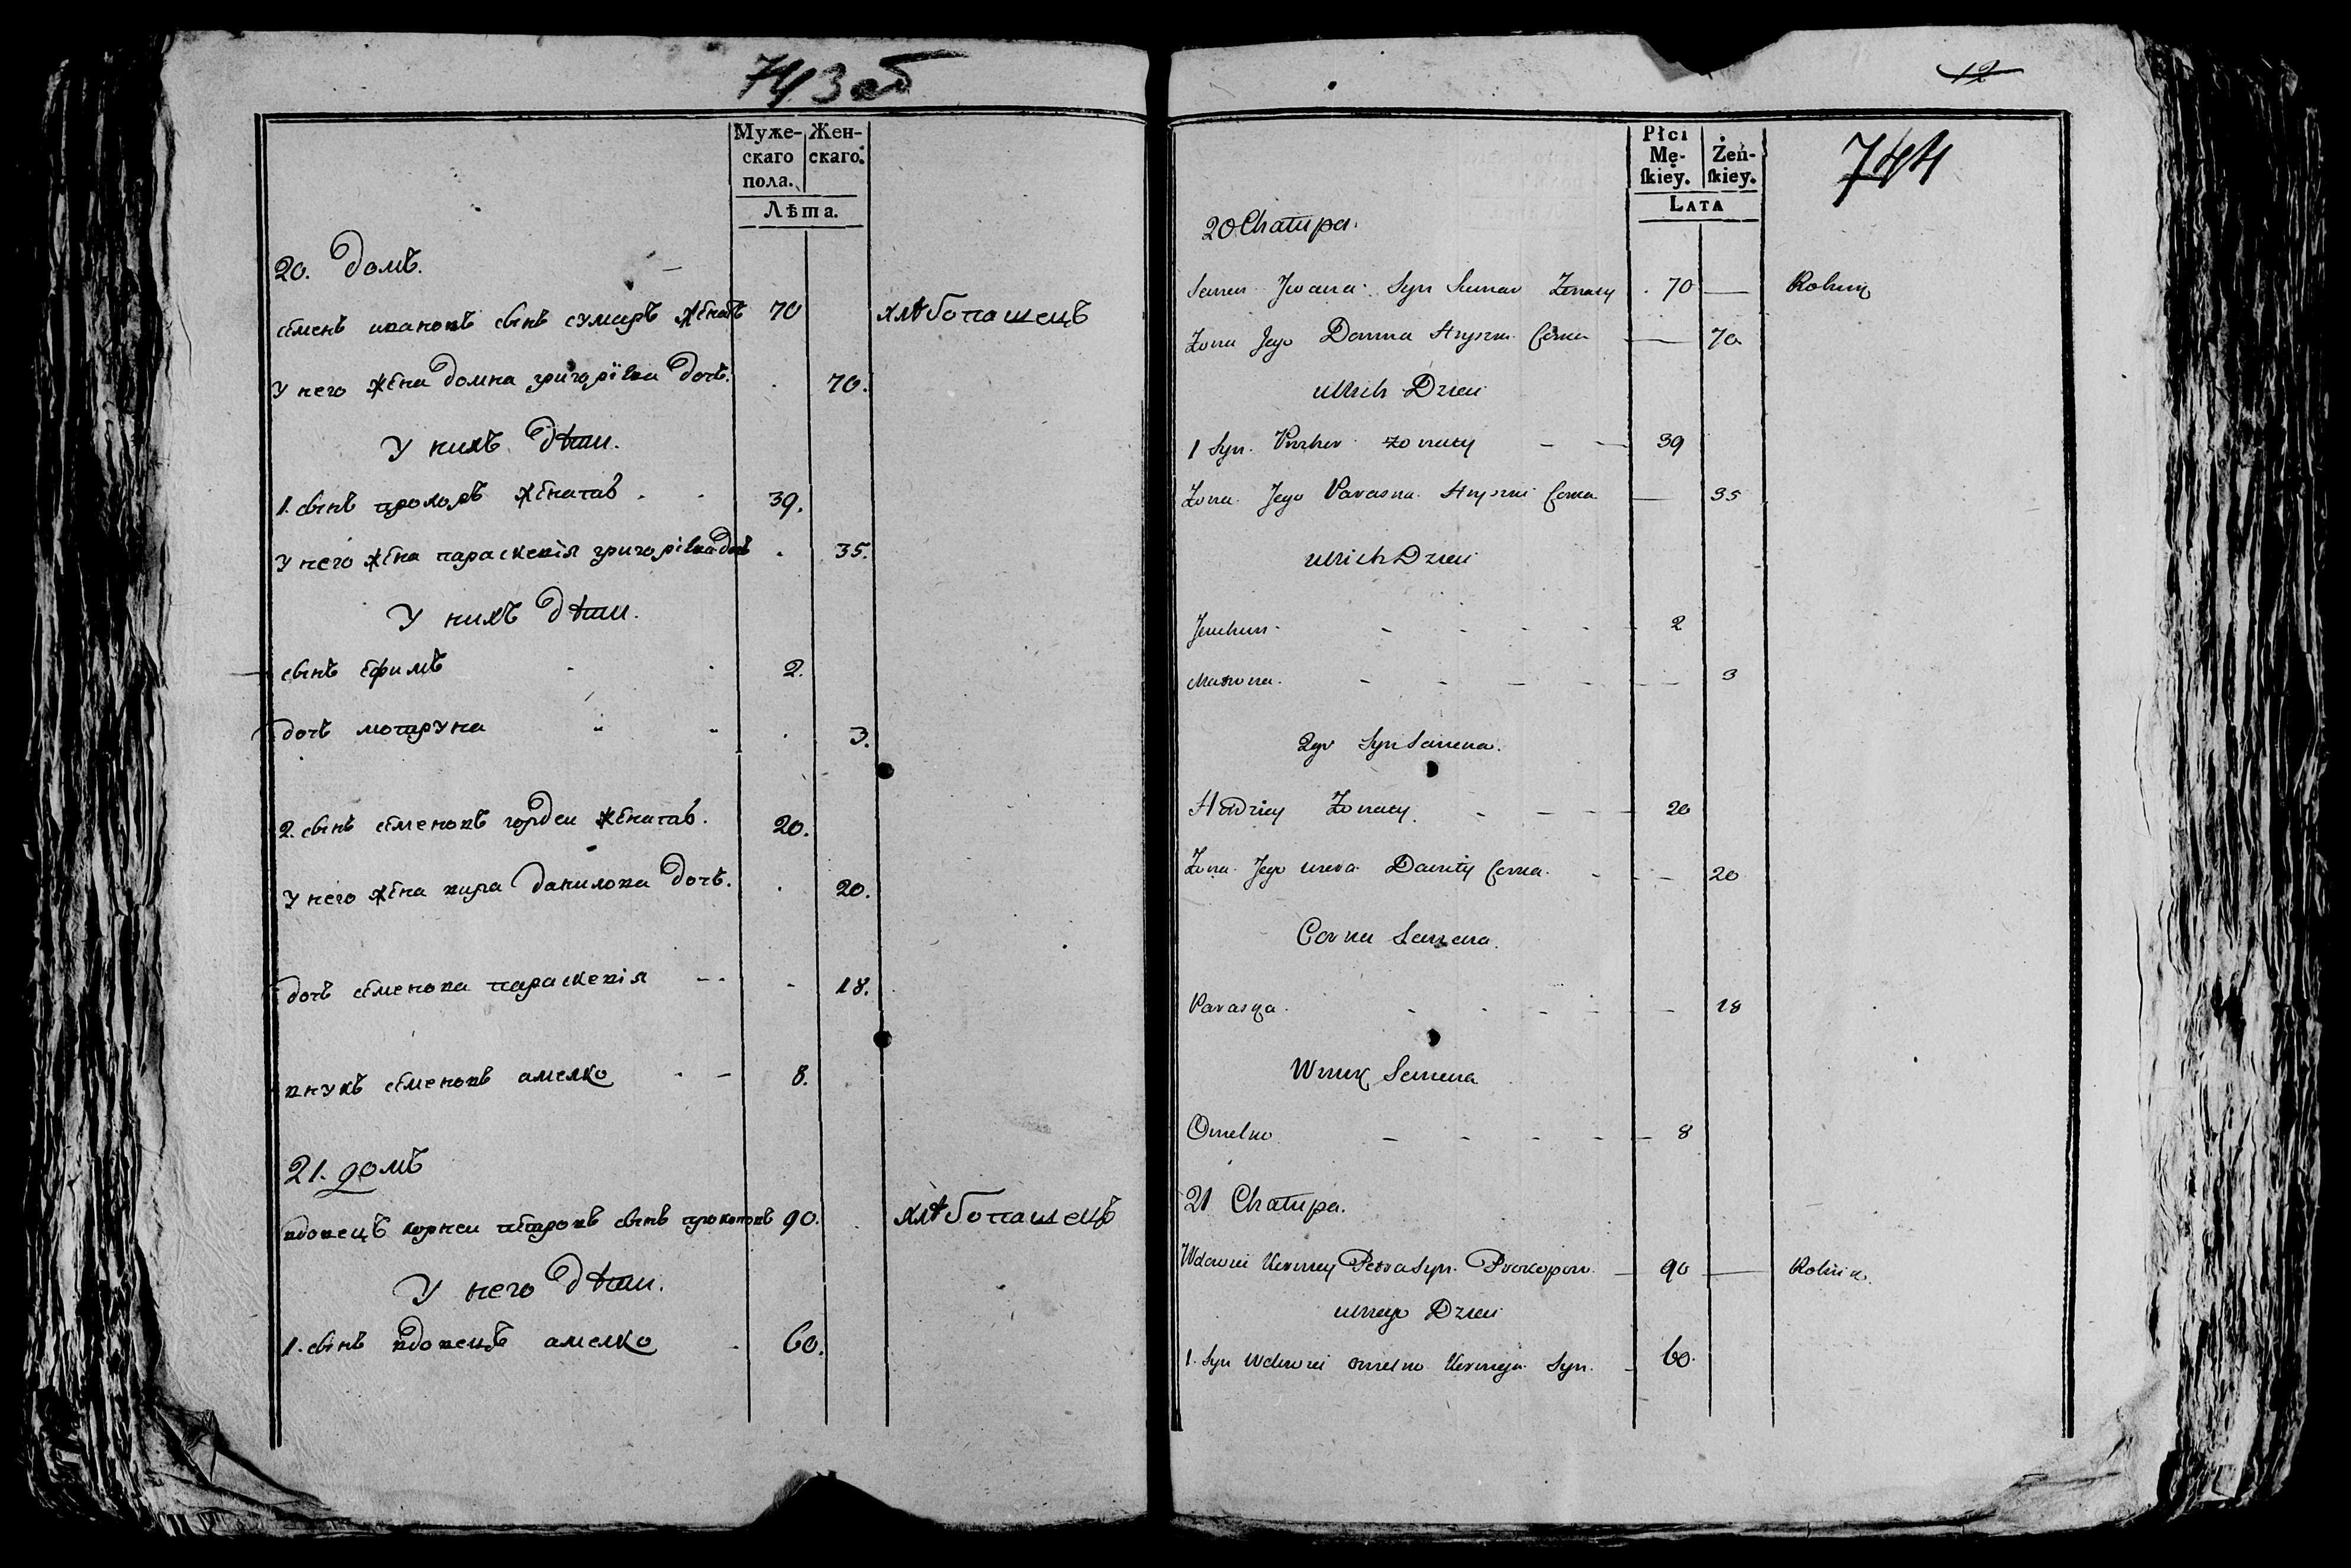 743 об
Муже-
скаго
пола.
Жен-
скаго.
Лѣта.
20. домъ.
семенъ ивановъ сынъ сумаръ женатъ 70 хлѣбопашецъ
у него жена домна григорієва дочь. 70.
У нихъ дѣти.
1. сынъ прохоръ женатъ 39.
у него жена параскевія григорієва дочь 35.
У нихъ дѣти.
сынъ ефимъ 2.
дочь мотруна 3.
2. сынъ семеновъ гордеи женатъ. 20.
у него жена вира данилова дочь. 20.
дочь семенова параскевія 18.
внукъ семеновъ амелко 8.
21. домъ
вдовецъ корнеи петровъ сынъ прокоповъ 90. хлѣбопашецъ
У него дѣти.
1. сынъ вдовецъ амелко 60.
12
744
Płci
Mę-
ſkiey.
Żeń-
ſkiey.
LATA
20 Chałupa.
Semen Jwana Syn Sumar Zonaty 70 Rolnik
Zona Jego Domna Hryszni Corka 70
u Nich Dzieci
1 Syn Prochor Zonaty 39
Zona Jego Paraska Hryszni Corka 35
u Nich Dzieci
Jeuchim 2
Matrona 3
2gi Syn Semena.
Hordziey Zonaty 20
Zona Jego Wera Daniły Corka 20
Corka Semena.
Paraska 18
Wnuk Semena
Omelko 8
21 Chałupa.
Wdowiec Kerniey Petra Syn Prokopow 90 Rolnik.
u Niego Dzieci
1. Syn Wdowiec Omelko Kernieja Syn 60.